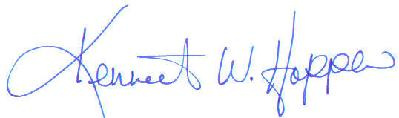 Kenneth W. Hoppen